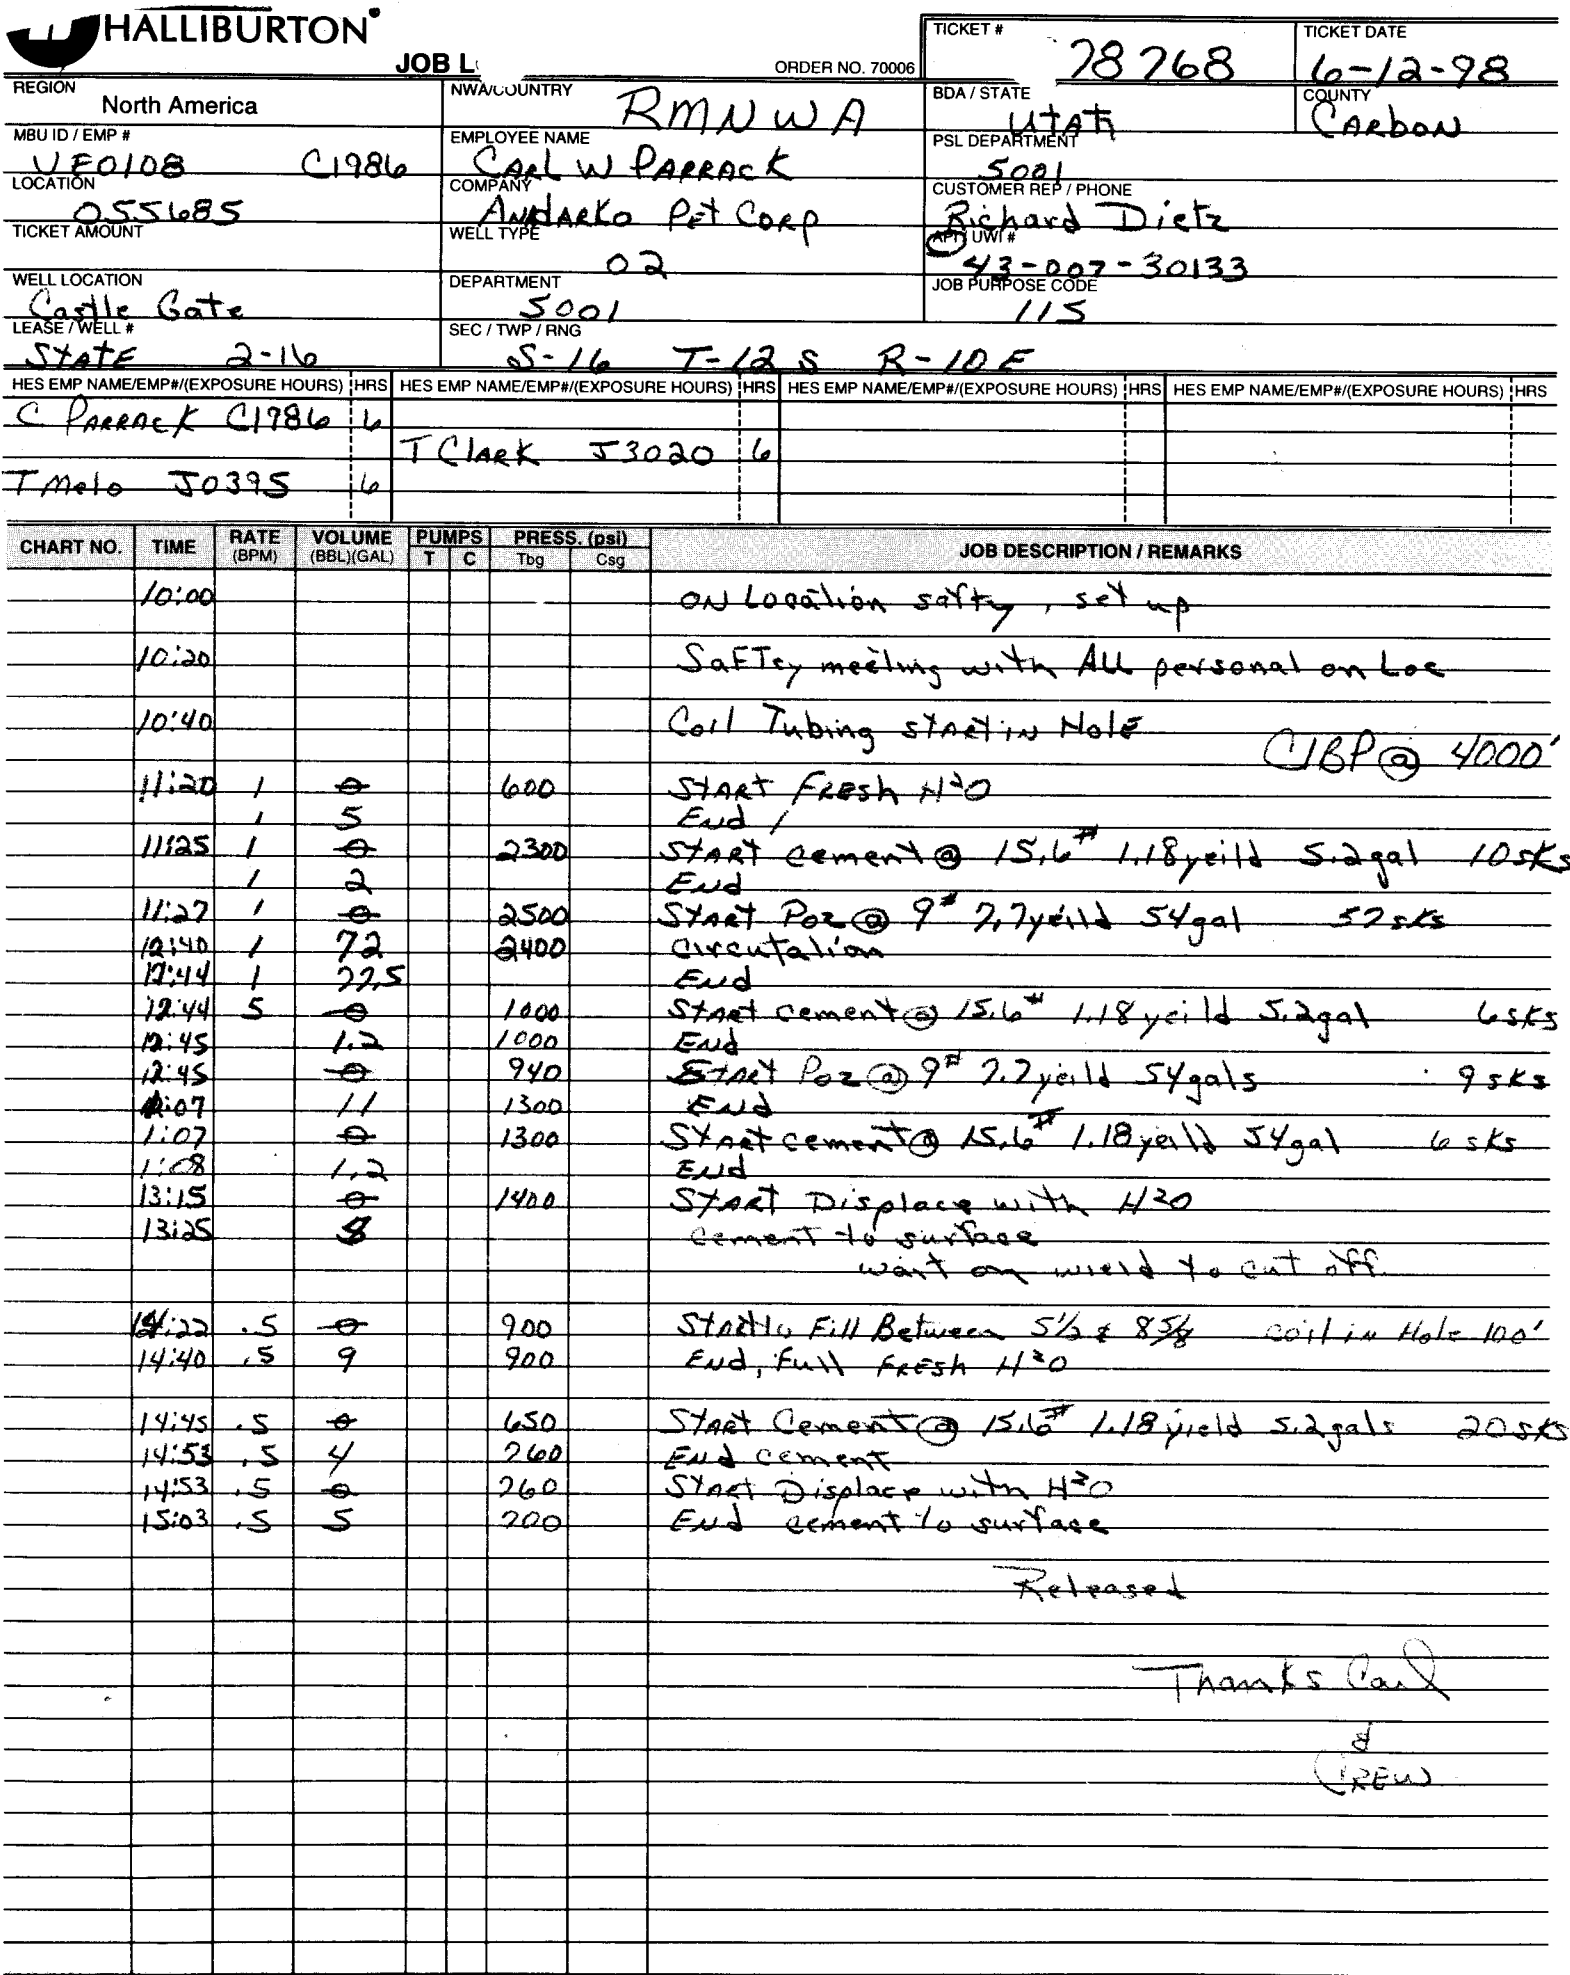 HALLIBURTON
JOB L
ORDER NO. 70006
TICKET #
78768
TICKET DATE
6-12-98
REGION
North America
NWA/COUNTRY
RMNWA
BDA / STATE
UTAh
COUNTY
CARbON
MBU ID / EMP #
VE0108 C1986
EMPLOYEE NAME
CARL W PARRACK
PSL DEPARTMENT
5001
LOCATION
055685
COMPANY
ANDARKO Pet CORP
CUSTOMER REP / PHONE
Richard Dietz
TICKET AMOUNT
WELL TYPE
02
API / UWI #
43-007-30133
WELL LOCATION
Castle Gate
DEPARTMENT
5001
JOB PURPOSE CODE
115
LEASE / WELL #
STATE 2-16
SEC / TWP / RNG
S-16 T-12 S R-10 E
HES EMP NAME/EMP#/(EXPOSURE HOURS) HRS HES EMP NAME/EMP#/(EXPOSURE HOURS) HRS HES EMP NAME/EMP#/(EXPOSURE HOURS) HRS HES EMP NAME/EMP#/(EXPOSURE HOURS) HRS
C PARRACK C1986 6
T ClARK J3020 6
T Melo J0395 6
CHART NO. TIME RATE (BPM) VOLUME (BBL)(GAL) PUMPS T C PRESS. (psi) Tbg Csg JOB DESCRIPTION / REMARKS
10:00 ON Location safty, set up
10:20 SaFTey meeting with ALL personal on Loc
10:40 Coil Tubing start in Hole
CIBP @ 4000'
11:20 1 0 600 START FRESh H2O
1 5 End
11:25 1 0 2300 START cement @ 15.6# 1.18 yeild 5.2gal 10sks
1 2 End
11:27 1 0 2500 START Poz @ 9# 7.7yeild 54gal 57sks
12:40 1 72 2400 circutalion
12:44 1 77.5 End
12:44 5 0 1000 Start cement @ 15.6# 1.18 yeild 5.2gal 6sks
12:45 1.2 1000 End
12:45 0 940 START Poz @ 9# 7.7yeild 54gals 9sks
1:07 11 1300 End
1:07 0 1300 Start cement @ 15.6# 1.18 yeild 54gal 6 sks
1:08 1.2 End
13:15 0 1400 START Displace with H2O
13:25 8 cement to surface
wait on wield to cut off.
14:22 .5 0 900 Start to Fill Between 5 1/2 & 8 5/8 coil in Hole 100'
14:40 .5 9 900 End, Full FRESh H2O
14:45 .5 0 650 START Cement @ 15.6# 1.18 yield 5.2gals 20sks
14:53 .5 4 760 End cement
14:53 .5 0 760 Start Displace with H2O
15:03 .5 5 700 End cement to surface
Released
Thanks Carl
&
CREW